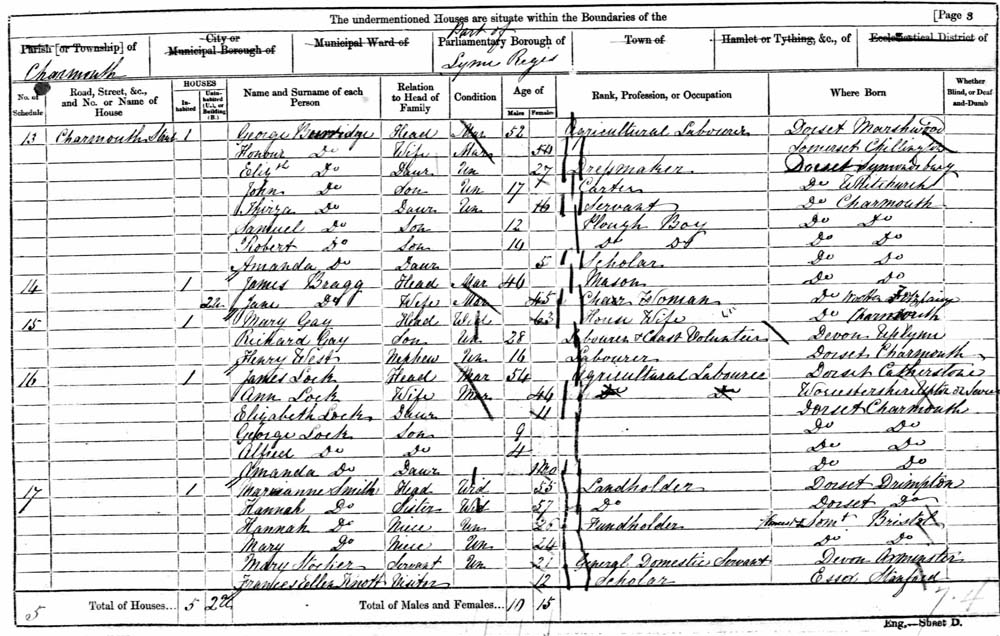 The undermentioned Houses are situate within the Boundaries of the [Page 3
Parish [or Township] of City or Municipal Borough of Municipal Ward of Part of Parliamentary Borough of Town of Hamlet or Tything, &c., of Ecclesiastical District of
Charmouth Lyme Regis
No. of Schedule Road, Street, &c., and No. or Name of House HOUSES Inhabited Uninhabited (U.), or Building (B.) Name and Surname of each Person Relation to Head of Family Condition Age of Males Females Rank, Profession, or Occupation Where Born Whether Blind, or Deaf-and-Dumb
13 Charmouth Street 1 George Burridge Head Mar 52 Agricultural Labourer Dorset Marshwood
Honour Do Wife Mar 54 Somerset Chillington
Elizth Do Daur Un 27 Dressmaker Dorset Symondsbury
John Do Son Un 17 Carter Do Whitchurch
Thirza Do Daur Un 16 Servant Do Charmouth
Samuel Do Son 12 Plough Boy Do Do
Robert Do Son 10 Do Do Do Do
Amanda Do Daur 5 Scholar Do Do
14 1 James Bragg Head Mar 46 Mason Do Do
2u Jane Do Wife Mar 45 Chair Woman Do Wootton Fitzpaine
15 1 Mary Gay Head Wid 63 House Wife Do Charmouth
Richard Gay Son Un 28 Labourer & Coast Volunteer Devon Uplyme
Henry West Nephew Un 16 Labourer Dorset Charmouth
16 1 James Lock Head Mar 54 Agricultural Labourer Dorset Catherstone
Ann Lock Wife Mar 44 Do Do Worcestershire Upton on Severn
Elizabeth Lock Daur 11 Dorset Charmouth
George Lock Son 9 Do Do
Alfred Do Do 4 Do Do
Amanda Do Daur Do Do
17 1 Marianne Smith Head Wid 55 Landholder Dorset Drimpton
Hannah Do Sister Wid 57 Do Dorset Do
Hannah Do Niece Un 25 Fundholder Somt Bristol
Mary Do Niece Un 24 Do Do
Mary Do Servant Un General Domestic Servant Devon Axminster
Frances Ellen Knott Visitor 12 Scholar Essex Stanford
5 Total of Houses... 5 2u Total of Males and Females... 10 15
Eng.—Sheet D.